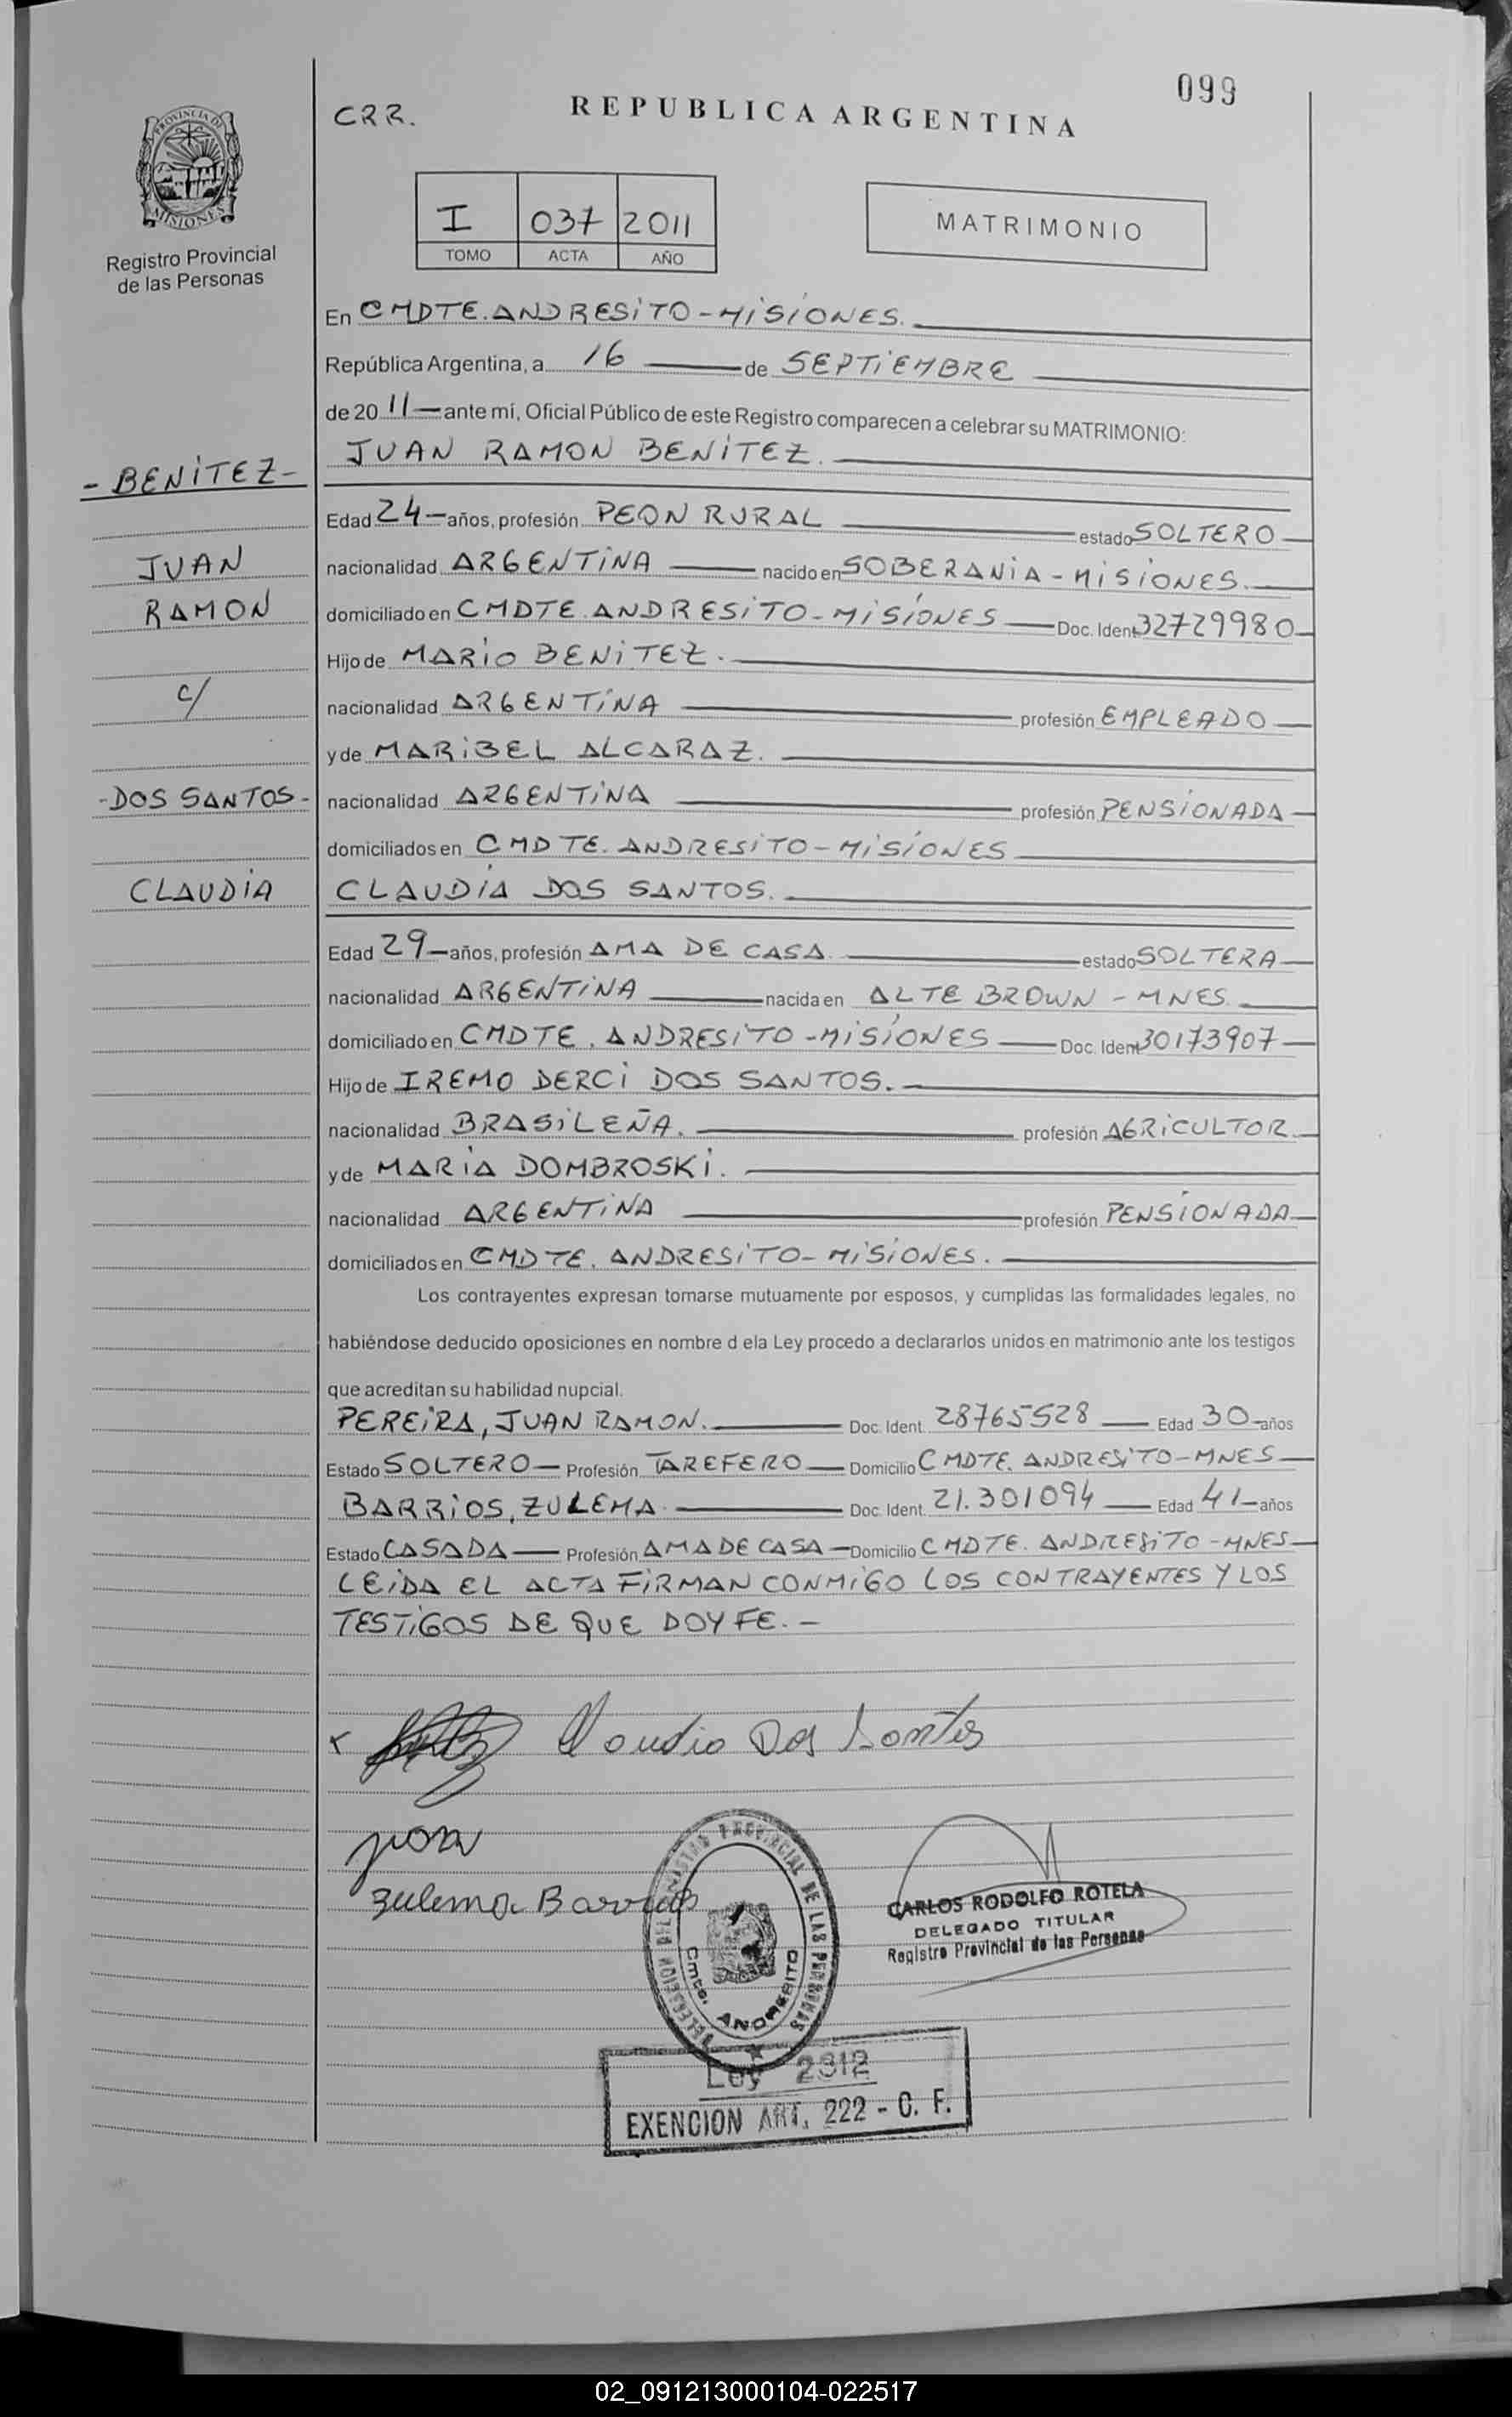 099
CRR.
REPUBLICA ARGENTINA
PROVINCIA DE
MISIONES
Registro Provincial
de las Personas
I 037 2011
TOMO ACTA AÑO
MATRIMONIO
En CMDTE. ANDRESITO - MISIONES.
República Argentina, a 16 de SEPTIEMBRE
de 20 11 ante mí, Oficial Público de este Registro comparecen a celebrar su MATRIMONIO:
JUAN RAMON BENITEZ.
- BENITEZ -
Edad 24 años, profesión PEON RURAL estado SOLTERO
JUAN
nacionalidad ARGENTINA nacido en SOBERANIA - MISIONES.
RAMON
domiciliado en CMDTE. ANDRESITO - MISIONES Doc. Ident. 32729980
Hijo de MARIO BENITEZ.
c/
nacionalidad ARGENTINA profesión EMPLEADO
y de MARIBEL ALCARAZ.
- DOS SANTOS -
nacionalidad ARGENTINA profesión PENSIONADA
domiciliados en CMDTE. ANDRESITO - MISIONES
CLAUDIA
CLAUDIA DOS SANTOS.
Edad 29 años, profesión AMA DE CASA. estado SOLTERA
nacionalidad ARGENTINA nacida en ALTE BROWN - MNES.
domiciliado en CMDTE. ANDRESITO - MISIONES Doc. Ident 30173907
Hijo de IREMO DERCI DOS SANTOS.
nacionalidad BRASILEÑA. profesión AGRICULTOR
y de MARIA DOMBROSKI.
nacionalidad ARGENTINA profesión PENSIONADA
domiciliados en CMDTE. ANDRESITO - MISIONES.
Los contrayentes expresan tomarse mutuamente por esposos, y cumplidas las formalidades legales, no
habiéndose deducido oposiciones en nombre d ela Ley procedo a declararlos unidos en matrimonio ante los testigos
que acreditan su habilidad nupcial.
PEREIRA, JUAN RAMON. Doc. Ident. 28765528 Edad 30 años
Estado SOLTERO Profesión TAREFERO Domicilio CMDTE. ANDRESITO - MNES
BARRIOS, ZULEMA Doc. Ident. 21.301094 Edad 41 años
Estado CASADA Profesión AMA DE CASA Domicilio CMDTE. ANDRESITO - MNES
LEIDA EL ACTA FIRMAN CONMIGO LOS CONTRAYENTES Y LOS
TESTIGOS DE QUE DOY FE. -
Claudia Dos Santos
Zulema Barrios
DELEGACION DEL REGISTRO PROVINCIAL DE LAS PERSONAS
Cmte. ANDRESITO
CARLOS RODOLFO ROTELA
DELEGADO TITULAR
Registro Provincial de las Personas
Ley 2312
EXENCION ART. 222 - C. F.
02_091213000104-022517